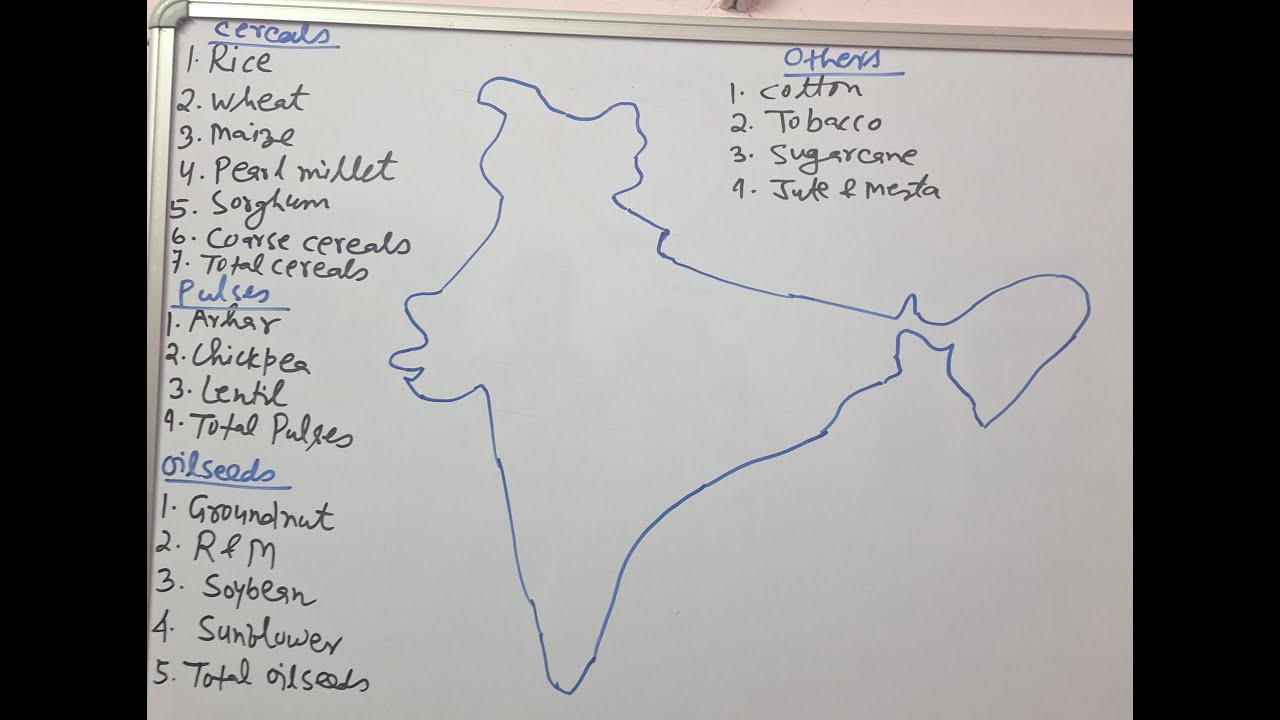 Cereals
1. Rice
2. Wheat
3. Maize
4. Pearl millet
5. Sorghum
6. Coarse cereals
7. Total cereals
Pulses
1. Arhar
2. Chickpea
3. Lentil
4. Total Pulses
Oilseeds
1. Groundnut
2. R & M
3. Soybean
4. Sunflower
5. Total oilseeds
Others
1. Cotton
2. Tobacco
3. Sugarcane
4. Jute & Mesta